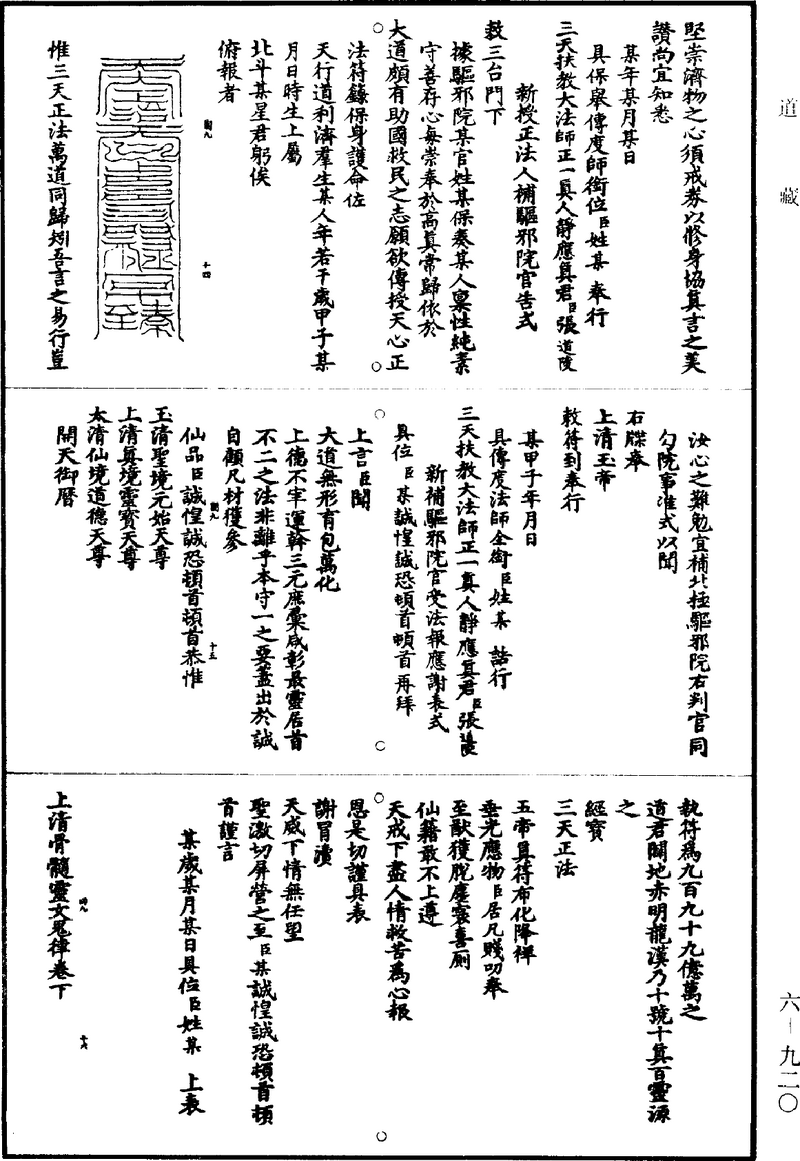 堅崇濟物之心須戒券以修身協真言之美
讚尚宜知悉
某年某月某日
具保舉傳度師銜位臣姓某奉行
三天扶教大法師正一真人靜應真君臣張道陵
新授正法人補驅邪院官告式
敕三台門下
據驅邪院某官姓某保奏某人稟性純素
守善存心每崇奉於高真常歸依於
大道頗有助國救民之志願欲傳授天心正
法符籙保身護命佐
天行道利濟羣生某人年若干歲甲子某
月日時生上屬
北斗某星君躬俟
俯報者
十四
惟三天正法萬道同歸矧吾言之易行豈
汝心之難勉宜補北極驅邪院右判官同
勾院事准式以聞
右牒奉
上清玉帝
敕符到奉行
某甲子年月日
具傳度法師全銜臣姓某 誥行
三天扶教大法師正一真人靜應真君臣張道陵
新補驅邪院官受法報應謝表式
具位臣某誠惶誠恐頓首頓首再拜
上言臣聞
大道無形育包萬化
上德不宰運斡三元庶彙咸彰最靈居首
不二之法非離乎本守一之要蓋出於誠
自顧尺材獲參
仙品臣誠惶誠恐頓首頓首恭惟
十五
玉清聖境元始天尊
上清真境靈寶天尊
太清仙境道德天尊
開天御曆
執符為九百九十九億萬之
道君闢地赤明龍漢乃十號十真百靈源
之
經寶
三天正法
五帝真符布化降禪
垂光應物臣居凡賤叨奉
至猷獲脫塵寰喜廁
仙籍敢不上遵
天戒下盡人情救苦為心報
恩是切謹具表
謝冒瀆
天威下情無任望
聖激切屏營之至臣某誠惶誠恐頓首頓
首謹言
某歲某月某日具位臣姓某 上表
上清骨髓靈文鬼律卷下
十六
道藏
六-九二〇